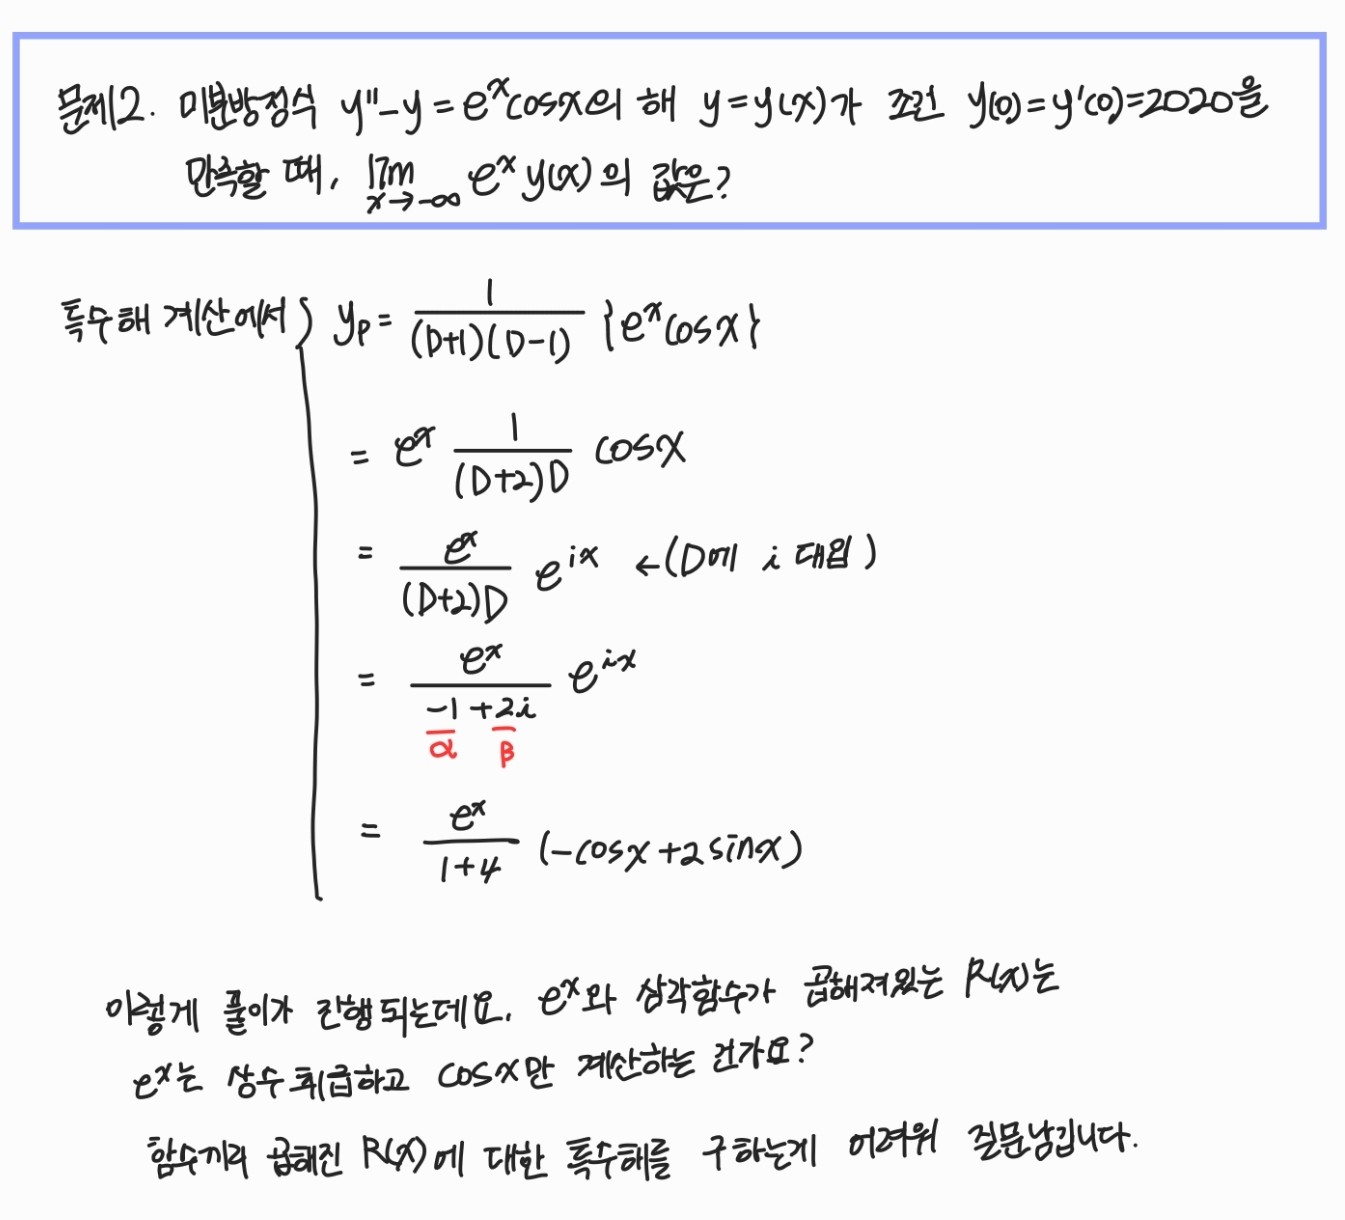 문제12. 미분방정식 y"-y=e^x cosx의 해 y=y(x)가 조건 y(0)=y'(0)=2020을
만족할 때, lim x→-∞ e^x y(x)의 값은?
특수해 계산에서) y_p = 1/((D+1)(D-1)) {e^x cosx}
= e^x 1/((D+2)D) cosx
= e^x/((D+2)D) e^{ix} ←(D에 i 대입)
= e^x/(-1+2i) e^{ix}
α β
= e^x/(1+4) (-cosx+2sinx)
이렇게 풀이가 진행되는데요, e^x와 삼각함수가 곱해져있는 R(x)는
e^x는 상수취급하고 cosx만 계산하는 건가요?
함수끼리 곱해진 R(x)에 대한 특수해를 구하는게 어려워 질문남깁니다.